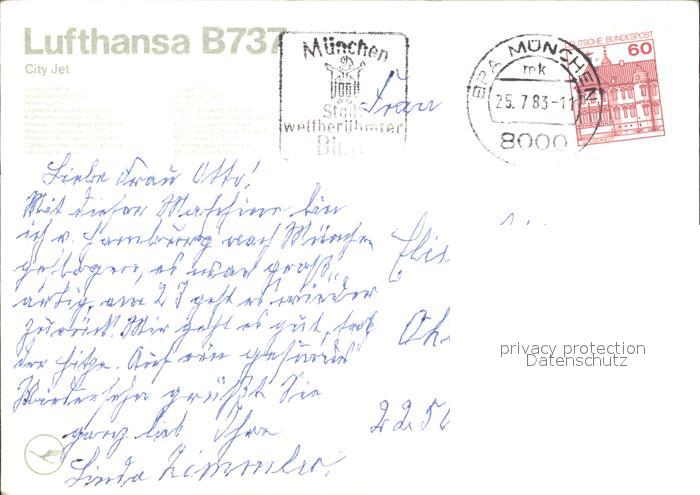 Lufthansa B737
City Jet
München
Stadt
weltberühmter
Biere
BPA MÜNCHEN
mk
25.7.83-11
8000
DEUTSCHE BUNDESPOST
60
Frau
Liebe Frau Otto!
Mit dieser Maschine bin
ich v. Hamburg nach München
geflogen, es war groß-
artig, am 27 geht es wieder
zurück. Mir geht es gut, trotz
der Hitze. Auf ein gesundes
Wiedersehn grüßt Sie
ganz lieb Ihre
Linda
Elis
Oh
22 50
privacy protection
Datenschutz